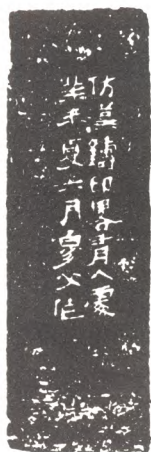 仿漢鑄印畧有入處
癸未夏六月父作